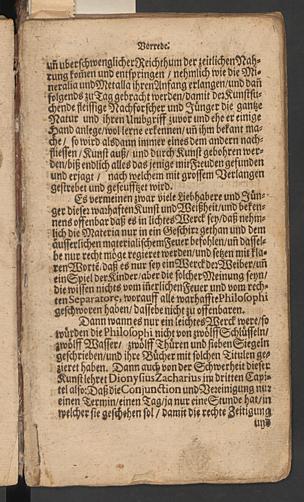 Vorrede.
uñ uberschwenglicher Reichthum der zeitlichen Nah-
rung kom̃en und entspringen / nehmlich wie die Mi-
neralia und Metalla ihren Anfang erlangen / und dañ
folgends zu Tag gebracht werden / damit der Kunstsu-
chende fleissige Nachforscher und Jünger die gantze
Natur und ihren Umbgriff zuvor und ehe er einige
Hand anlege / wol lerne erkennen / uñ ihm bekant ma-
che / so wird alsdann immer eines dem andern nach-
fliessen / Kunst auß / und durch Kunst gebohren wer-
den / biß endlich alles das jenige mit Freuden gefunden
und erjagt / nach welchem mit grossem Verlangen
gestrebet und geseufftzet wird.
Es vermeinen zwar viele Liebhabere und Jün-
ger dieser warhafften Kunst und Weißheit / und beken-
nens offenbar daß es in lichtes Werck sey / daß nehm-
lich die Materia nur in ein Geschirr gethan und dem
äusserlichen materialischem Feuer befohlen / uñ dassel-
be nur recht möge regieret werden / und setzen mit kla-
ren Worte͂ / daß es nur sey ein Werck der Weiber / uñ
ein Spiel der Kinder / aber die solcher Meinung seyn /
die wissen nichts vom iñerlichen Feuer und vom rech-
ten Separatore, worauff alle warhafftie Philosophi
geschworen haben / dasselbe nicht zu offenbaren.
Dann wann es nur ein leichtes Werck were / so
würden die Philosophi nicht von zwölff Schlüsseln /
zwölff Wasser / zwölff Thüren und sieben Siegeln
geschrieben / und ihre Bücher mit solchen Titulen ge-
zieret haben. Dann auch von der Schwerheit dieser
Kunst lehret Dionysius Zacharius im dritten Capi-
tel also: Daß die Conjunction und Vereinigung nur
einen Termin / einen Tag / ja nur eine Stunde hat / in
welcher sie geschehen sol / damit die rechte Zeitigung
und